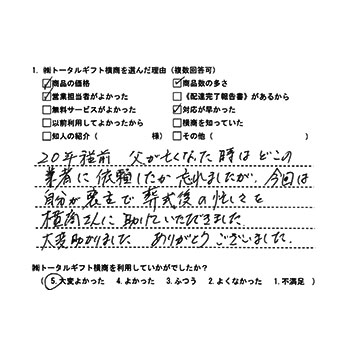 1. ㈱トータルギフト横商を選んだ理由（複数回答可）
☑商品の価格 ☑商品数の多さ
☑営業担当者がよかった □《配達完了報告書》があるから
□無料サービスがよかった ☑対応が早かった
□以前利用してよかったから □横商を知っていた
□知人の紹介（ 様） □その他（ ）
20年程前 父が亡くなった時はどこの
業者に依頼したか忘れましたが、今回は
自分が喪主で葬式後の忙しさを
横商さんに助けていただきました。
大変助かりました ありがとうございました。
㈱トータルギフト横商を利用していかがでしたか？
（ 5.大変よかった 4.よかった 3.ふつう 2.よくなかった 1.不満足 ）